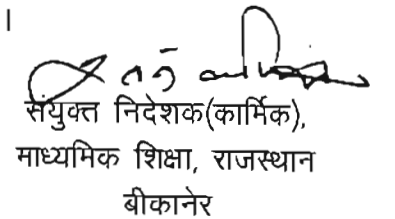 ।
संयुक्त निदेशक(कार्मिक),
माध्यमिक शिक्षा, राजस्थान
बीकानेर